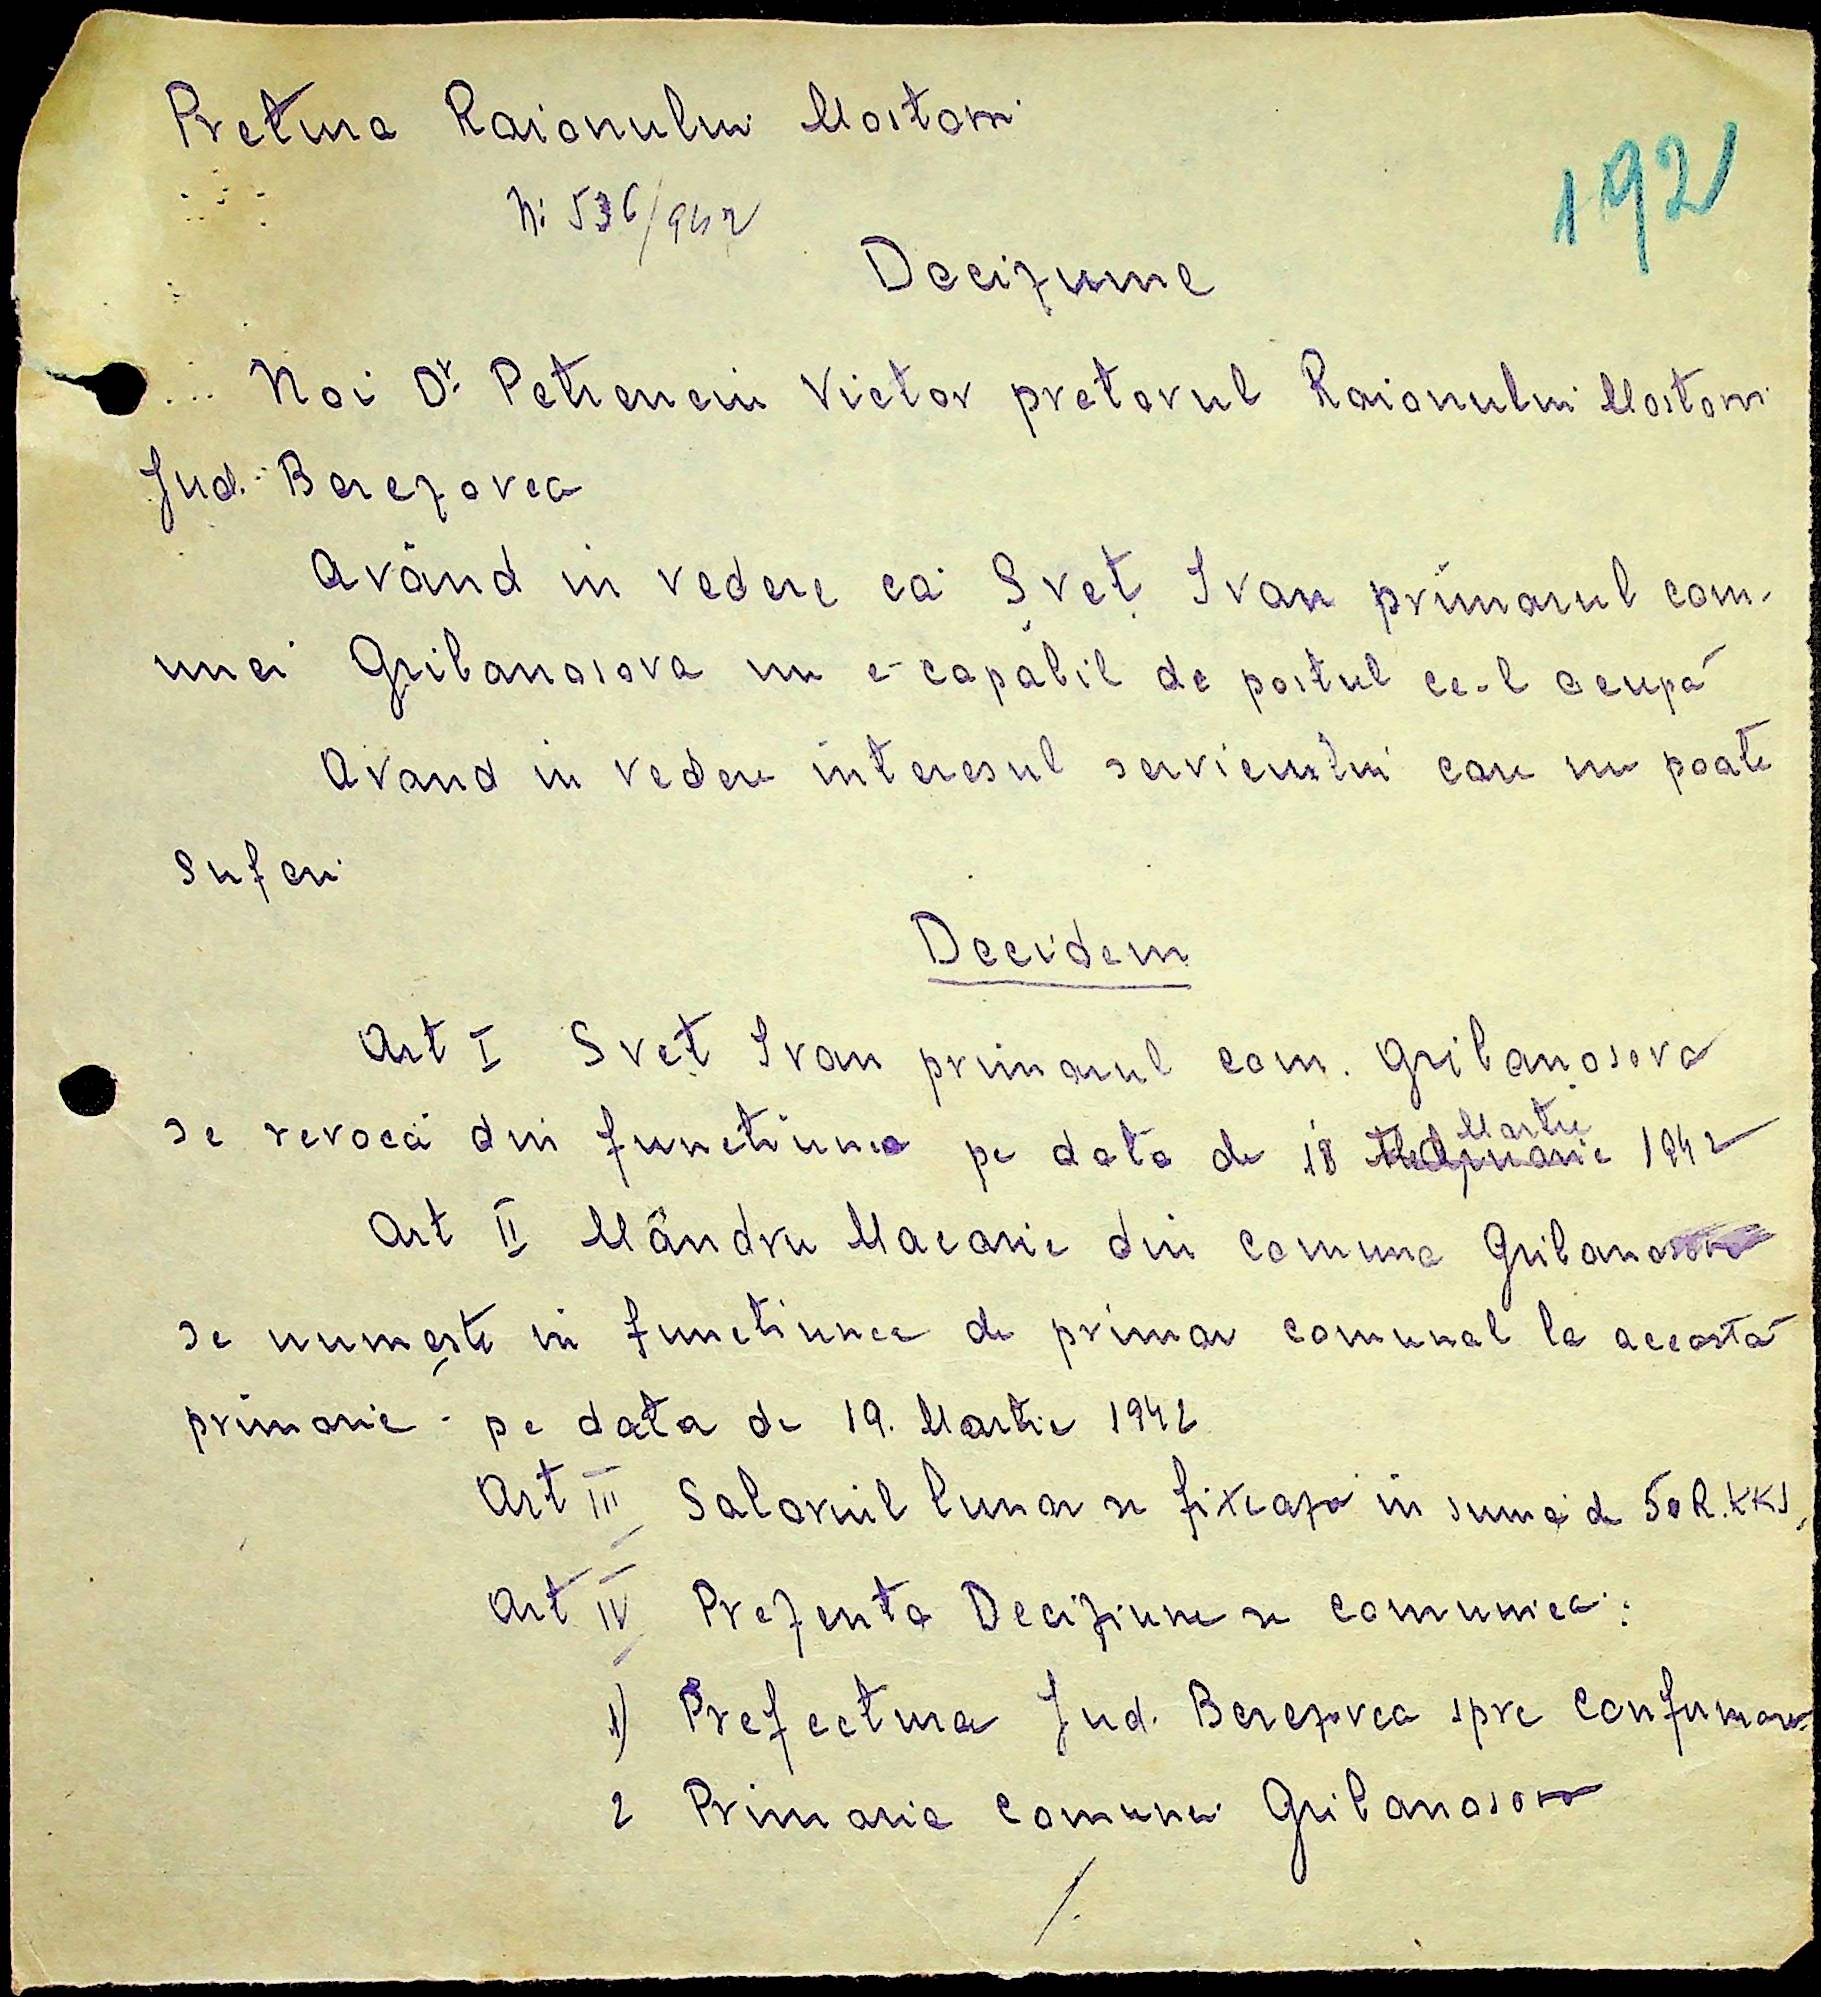 Pretura Raionului Mostovoi
192
Nr 536/942
Deciziune
Noi Dr. Petrenciu Victor pretorul Raionului Mostovoi
Jud. Berezovca
Având in vedere că Sveț Ivan primarul com-
unei Gribanosova nu e capabil de postul ce-l ocupă
Avand in vedere interesul serviciului care nu poate
suferi
Decidem
Art I Sveț Ivan primarul com. Gribanosova
se revocă din functiunea pe data de 18 Martie 1942
Art II Mândru Macarie din comuna Gribanosova
se numește in functiunea de primar comunal la această
primarie - pe data de 19. Martie 1942
Art III Salariul lunar se fixează in sumă de 50 R.KKS,
Art IV Prezenta Deciziune se comunica:
1) Prefectura Jud. Berezovca spre confirmare
2 Primarie comunei Gribanosova
/.